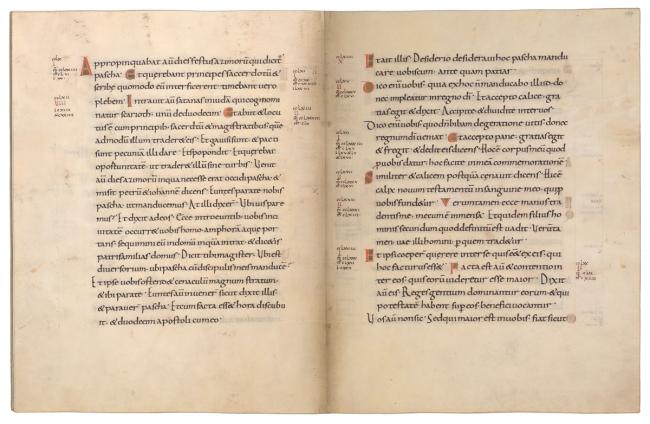 Appropinquabat aũ dies festus azimorũ qui dicit̃
pascha· Et querebant principes sacerdotũ &
scribe quomodo eũ interficerent timebant uero
plebem· Intrauit aũ satanas in iudã qui cognomi
natur scarioth· unũ de duodecim· Et abiit & locu
tus ẽ cum principib; sacerdotũ & magistratibus quẽ
admodũ illum traderet eis· Et gauisi sunt & pacti
sunt pecuniã illi dare· Et spopondit· Et querebat
oportunitatẽ ut trader& illũ sine turbis· Venit
aũ dies azimorũ in qua necesse erat occidi pascha· &
misit petrũ & iohannẽ dicens· Euntes parate nobis
pascha· ut manducemus· At illi dixer̃· Ubi uis pare
mus· Et dixit ad eos· Ecce introeuntib; uobis in ci
uitatẽ occurr& uobis homo amphorã aque por
tans· sequimini eũ in domũ in qua intrat· & dicetis
patrifamilias domus· Dicit tibi magister· Ubi est
diuersorium· ubi pascha cũ discipulis meis manducẽ
Et ipse uobis ostend& cenaculũ magnum stratum·
& ibi parate· Euntes aũ inuener̃ sicut dixit illis·
& parauer̃ pascha· Et cum facta esset hora discubu
it· & duodecim apostoli cum eo·
Et ait illis· Desiderio desideraui hoc pascha mandu
care uobiscum· ante quam patiar·
Dico enĩ uobis· quia ex hoc ñ manducabo illud· do
nec impleatur in regno dĩ· Et accepto calice· gra
tias egit & dixit· Accipite & diuidite inter uos·
Dico enĩ uobis quod ñ bibam de generatione uitis donec
regnum dĩ ueniat· Et accepto pane· gratias egit
& fregit· & dedit eis dicens· Hoc ẽ corpus meũ quod
pro uobis datur· hoc facite in meã commemorationẽ
Similiter & calicem postquã cenauit dicens· Hic ẽ
calix nouum testamentũ in sanguine meo· qui p̃
uobis fundetur· Veruntamen ecce manus tra
dentis me· mecum ẽ in mensa· Et quidem filius ho
minis secundum quod definitũ est uadit· Verũta
men uae illi homini· p quem tradetur·
Et ipsi coeper̃ querere inter se quis eẽt ex eis· qui
hoc facturus esset· Facta est aũ & contentio in
ter eos· quis eorũ uideretur esse maior· Dixit
aũ eis· Reges gentium dominantur eorum· & qui
potestatẽ habent sup eos· benefici uocantur·
Vos aũ non sic· Sed qui maior est in uobis· fiat sicut